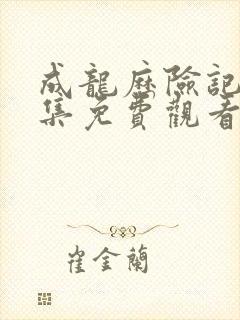 成龍歷險記
集免費觀看
崔金蘭